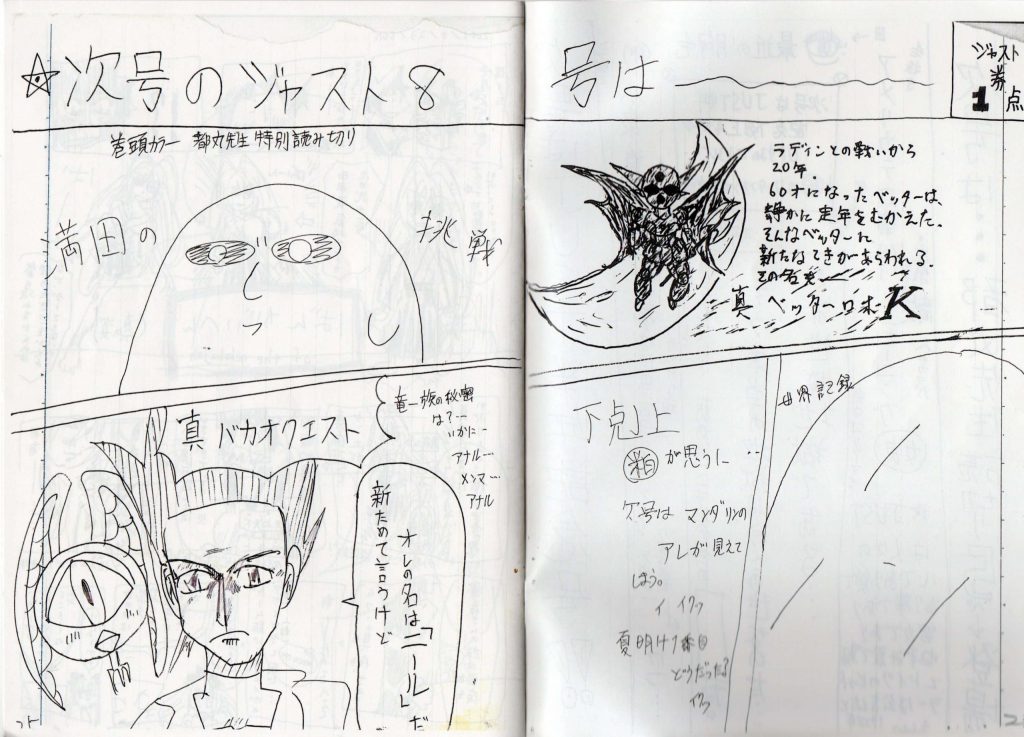 ☆次号のジャスト8
号は
ジャスト
券
1点
巻頭カラー 都丸先生 特別読み切り
満田の
挑戦
ラディンとの戦いから
20年。
60才になったベッターは、
静かに定年をむかえた。
そんなベッターに
新たなてきがあらわれる。
その名も
真 ベッターロボK
真 バカオクエスト
竜一族の秘密
は?…
いかに…
アナル…
メンマ…
アナル
オレの名は「ニール」だ
新ためて言うけど
下剋上
が思うに…
次号は マンダリンの
アレが見えて
しまう。
イ イクッ
夏明け1番目
どうだったる
イクッ
世界記録